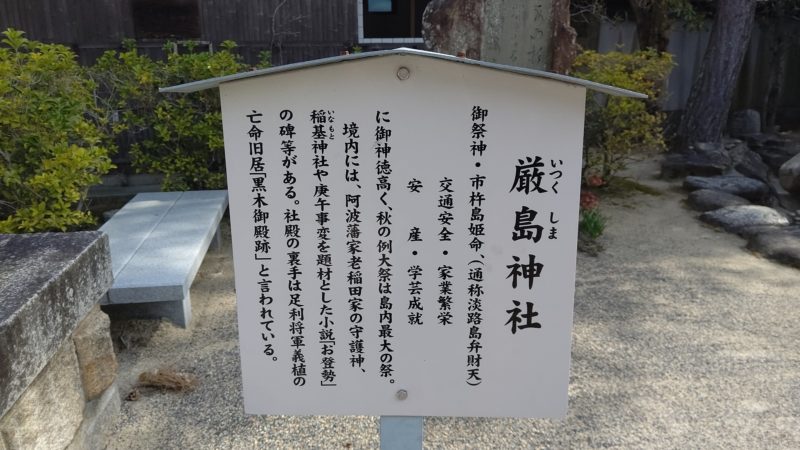 厳島神社
いつくしま
御祭神・市杵島姫命、(通称淡路島弁財天)
交通安全・家業繁栄
安産・学芸成就
に御神徳高く、秋の例大祭は島内最大の祭。
境内には、阿波藩家老稲田家の守護神、
稲基神社や庚午事変を題材とした小説「お登勢」
いなもと
の碑等がある。社殿の裏手は足利将軍義植の
亡命旧居「黒木御殿跡」と言われている。